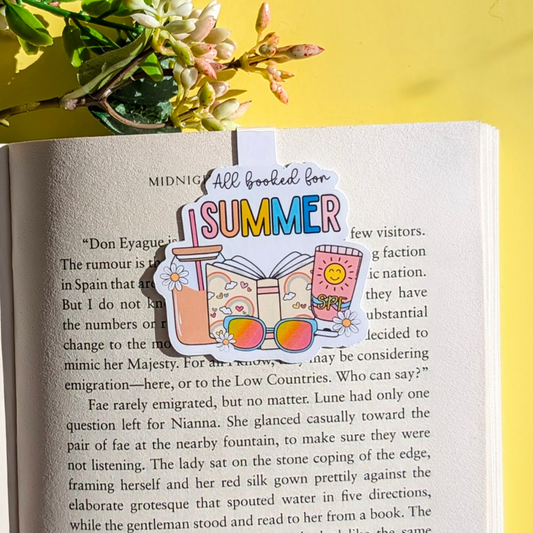 MIDNIG
All booked for
SUMMER
SPF
"Don Eyague is few visitors.
The rumour is th g faction
in Spain that are ic nation.
But I do not kn they have
the numbers or r ubstantial
change to the mo decided to
mimic her Majesty. For all I know, they may be considering
emigration—here, or to the Low Countries. Who can say?"
Fae rarely emigrated, but no matter. Lune had only one
question left for Nianna. She glanced casually toward the
pair of fae at the nearby fountain, to make sure they were
not listening. The lady sat on the stone coping of the edge,
framing herself and her red silk gown prettily against the
elaborate grotesque that spouted water in five directions,
while the gentleman stood and read to her from a book. The
like the same